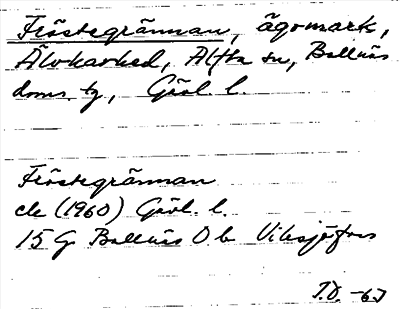 Fröstegrännan, ägomark,
Älvkarhed, Alfta sn, Bollnäs
doms. tg, Gävl. l.
Fröstegrännan
ek (1960) Gävl. l.
15 G Bollnäs O b Viksjöfors
T.D. -67